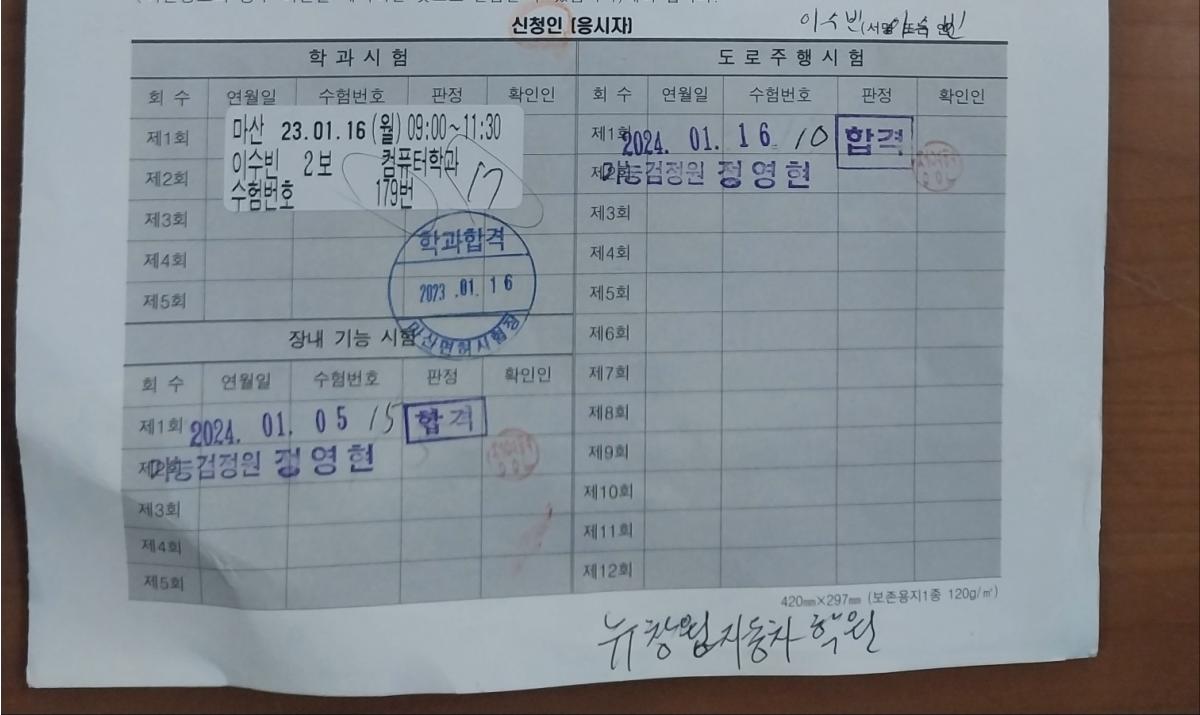 신청인 [응시자] 이수빈 (서명 또는 인) 이수빈
학 과 시 험
회 수 연월일 수험번호 판정 확인인
제1회
제2회
제3회
제4회
제5회
마산 23.01.16 (월) 09:00~11:30
이수빈 2보 컴퓨터학과
수험번호 179번
17
학과합격
2023 .01. 16
마산면허시험장
장내 기능 시험
회 수 연월일 수험번호 판정 확인인
제1회 2024. 01. 05 15 합격
제2회 기능검정원 정영현
제3회
제4회
제5회
도 로 주 행 시 험
회 수 연월일 수험번호 판정 확인인
제1회 2024. 01. 16 10 합격
제2회 기능검정원 정영현
제3회
제4회
제5회
제6회
제7회
제8회
제9회
제10회
제11회
제12회
420㎜×297㎜ (보존용지1종 120g/㎡)
뉴창원자동차학원